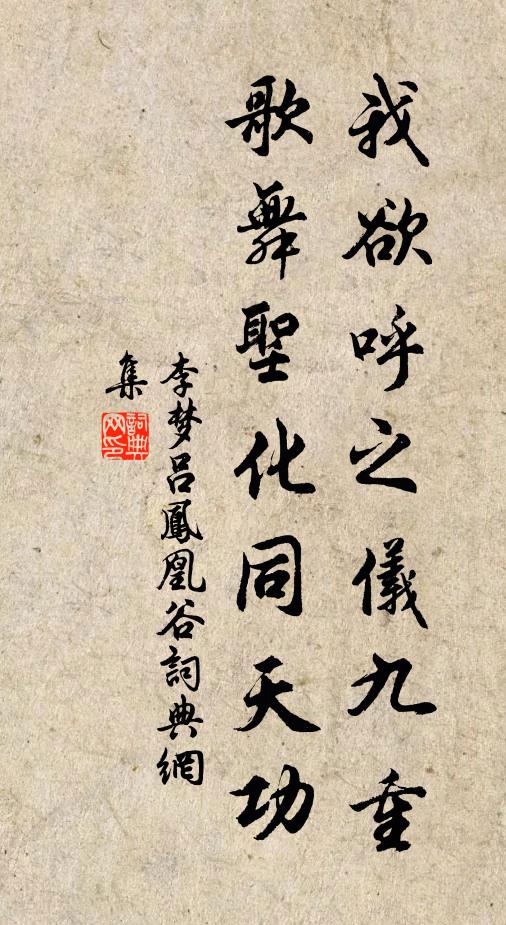 我欲呼之儀九重
歌舞聖化同天功
李梦吕鳳凰谷詞典網
集
詞典网印